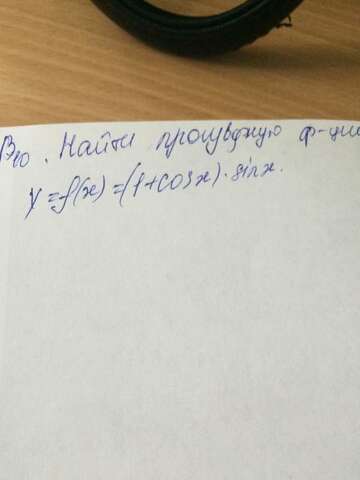 В10. Найти производную ф-ции
y=f(x)=(1+cosx)·sinx.